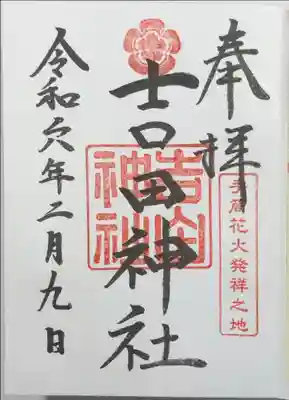 奉拝
手筒花火発祥之地
吉田神社
吉田神社
令和六年二月九日